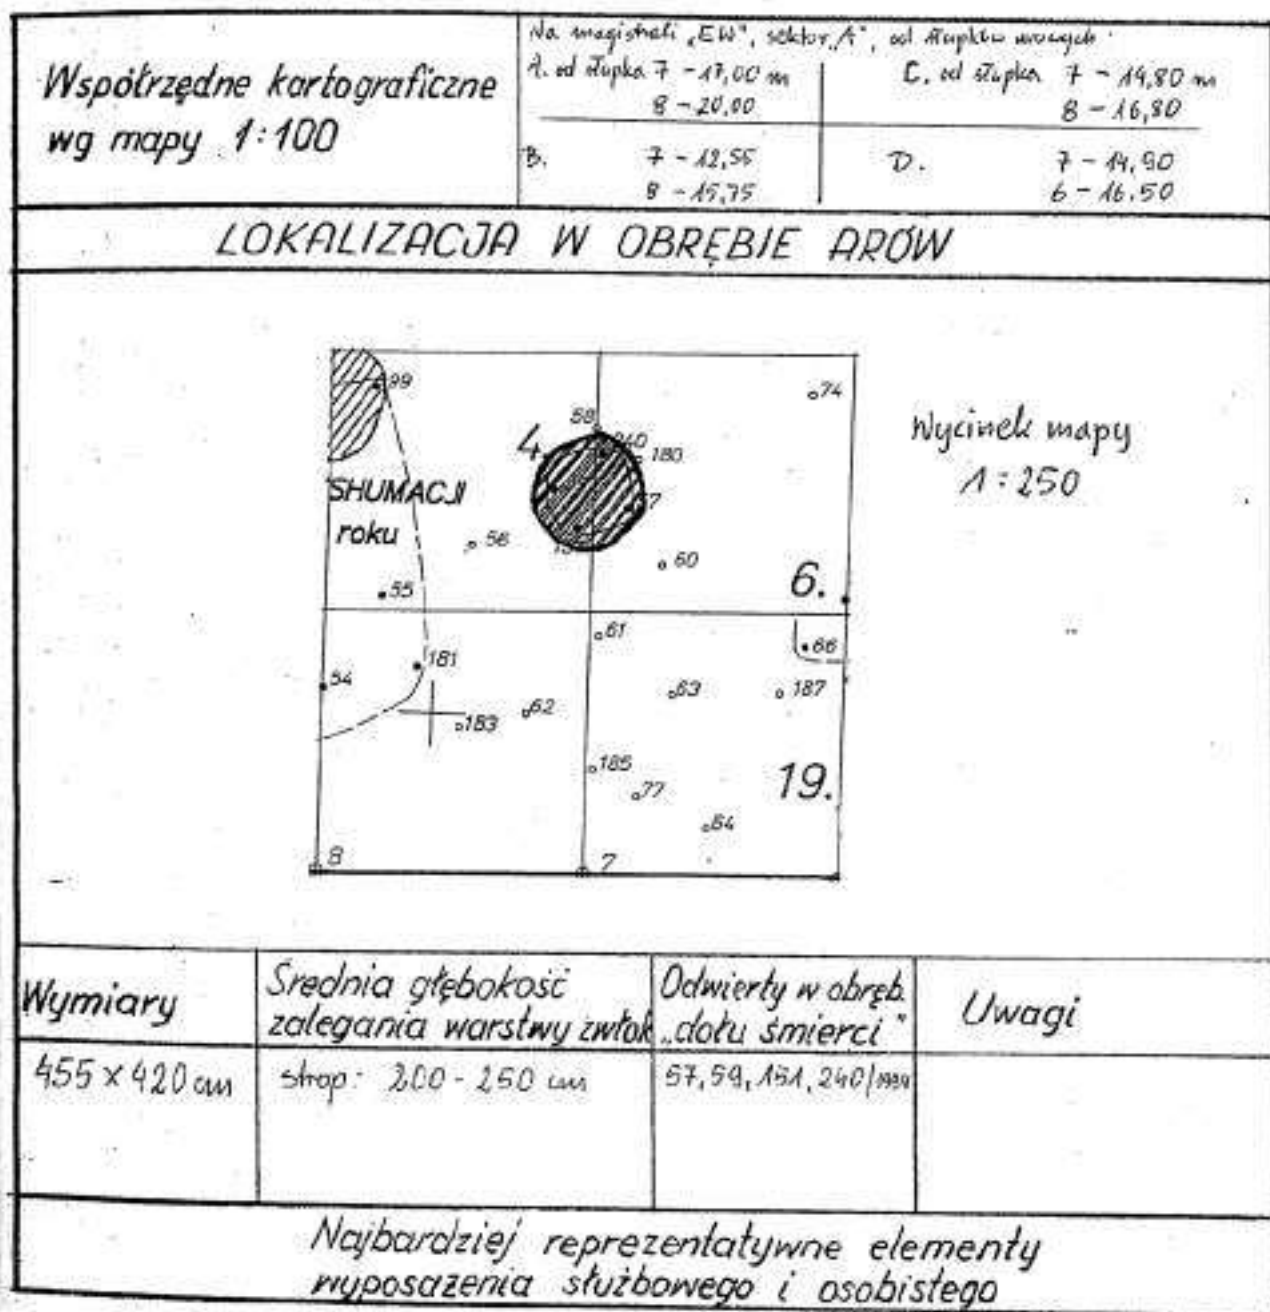 Współrzędne kartograficzne
wg mapy 1:100
Na magistrali „EW”, sektor „A”, od słupków
A. od słupka 7 - 17,00 m
8 - 20,00
C. od słupka 7 - 14,80 m
8 - 16,80
B. 7 - 12,55
8 - 15,75
D. 7 - 14,90
6 - 16.50
LOKALIZACJA W OBRĘBIE ARÓW
99
74
58
4.
240
180
Wycinek mapy
1:250
SHUMACJI
roku
57
56
60
6.
55
61
66
181
54
63
187
183
62
185
77
19.
64
8
7
Wymiary
Średnia głębokość
zalegania warstwy zwłok
Odwierty w obręb.
„dołu śmierci”
Uwagi
455 x 420 cm
strop: 200 - 250 cm
57, 59, 151, 240/1994
Najbardziej reprezentatywne elementy
wyposażenia służbowego i osobistego